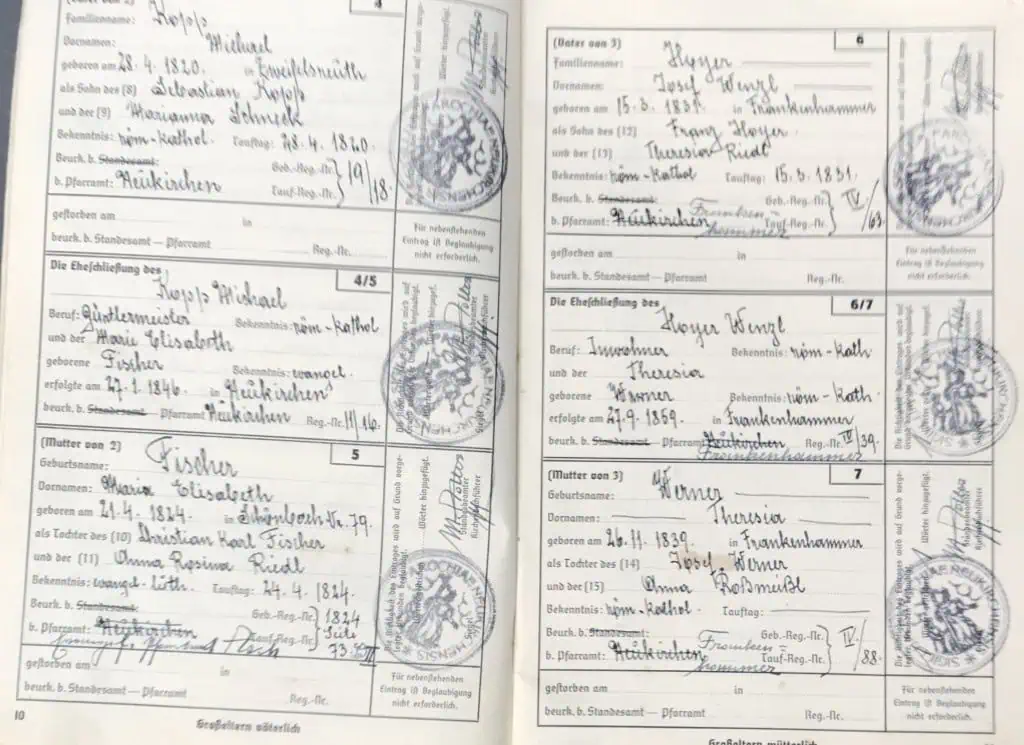 (Vater von 2)
4
Familienname: Kopp
Vornamen: Michael
geboren am 28.4.1820. in Zweifelsreuth
als Sohn des (8) Sebastian Kopp
und der (9) Marianna Schneck
Bekenntnis: röm-kathol. Tauftag: 28.4.1820.
Beurk. b. Standesamt: Geb.-Reg.-Nr. 19/18.
b. Pfarramt: Neukirchen Tauf-Reg.-Nr.
gestorben am in
beurk. b. Standesamt — Pfarramt Reg.-Nr.
Für nebenstehenden
Eintrag ist Beglaubigung
nicht erforderlich.
Die Eheschließung des
4/5
Kopp Michael
Beruf: Gürtlermeister Bekenntnis: röm-kathol
und der Marie Elisabeth
geborene Fischer Bekenntnis: evangel.
erfolgte am 27.1.1846. in Neukirchen
beurk. b. Standesamt — Pfarramt Neukirchen Reg.-Nr. II/16.
(Mutter von 2)
5
Geburtsname: Fischer
Vornamen: Maria Elisabeth
geboren am 21.4.1824. in Schönbach Nr. 79.
als Tochter des (10) Christian Karl Fischer
und der (11) Anna Rosina Riedl
Bekenntnis: evangel. luth. Tauftag: 24.4.1824.
Beurk. b. Standesamt: Geb.-Reg.-Nr. 1824
b. Pfarramt: Neukirchen Tauf-Reg.-Nr. Seite
Pfarramt Asch 73.
gestorben am in
beurk. b. Standesamt — Pfarramt Reg.-Nr.
Für nebenstehenden
Eintrag ist Beglaubigung
nicht erforderlich.
10
Großeltern väterlich
(Vater von 3)
6
Familienname: Hoyer
Vornamen: Josef Wenzl
geboren am 15.3.1831. in Frankenhammer
als Sohn des (12) Franz Hoyer.
und der (13) Theresia Riedl
Bekenntnis: röm-kathol Tauftag: 15.3.1831.
Beurk. b. Standesamt: Geb.-Reg.-Nr. IV/63.
b. Pfarramt: Neukirchen Franken=hammer Tauf-Reg.-Nr.
gestorben am in
beurk. b. Standesamt — Pfarramt Reg.-Nr.
Für nebenstehenden
Eintrag ist Beglaubigung
nicht erforderlich.
Die Eheschließung des
6/7
Hoyer Wenzl
Beruf: Inwohner Bekenntnis: röm-kath.
und der Theresia
geborene Werner Bekenntnis: röm-kath.
erfolgte am 27.9.1859. in Frankenhammer
beurk. b. Standesamt — Pfarramt Neukirchen Reg.-Nr. IV/39.
Frankenhammer
(Mutter von 3)
7
Geburtsname: Werner
Vornamen: Theresia
geboren am 26.11.1839. in Frankenhammer
als Tochter des (14) Josef Werner
und der (15) Anna Roßmeißl
Bekenntnis: röm-kathol. Tauftag:
Beurk. b. Standesamt: Geb.-Reg.-Nr. IV/88.
b. Pfarramt: Neukirchen Franken=hammer Tauf-Reg.-Nr.
gestorben am in
beurk. b. Standesamt — Pfarramt Reg.-Nr.
Für nebenstehenden
Eintrag ist Beglaubigung
nicht erforderlich.
Großeltern mütterlich